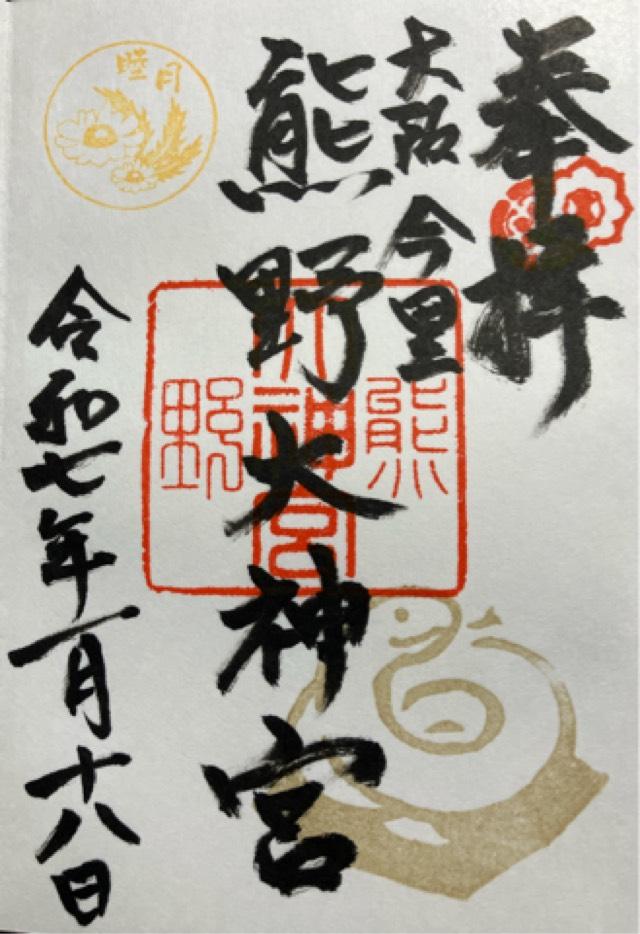 奉拝
大阪 今里
熊野大神宮
令和七年一月十八日
睦月
熊野
大神宮